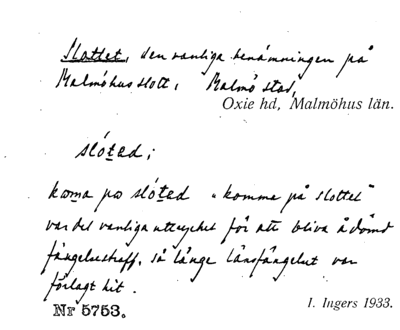 Slottet, den vanliga benämningen på
Malmöhus slott, Malmö stad,
Oxie hd, Malmöhus län.
slóted;
koma po slóted "komma på slottet"
var det vanliga uttrycket för att bliva ådömd
fängelsestraff, så länge länsfängelset var
förlagt hit.
Nr 5753.
I. Ingers 1933.